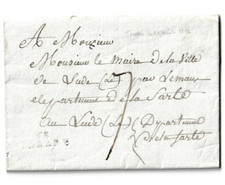 A Monsieur
Monsieur le Maire de la Ville
de Lude (Le) par Lemans
departement de la Sarte
au Lude (Le) Departement
de la Sarte
7